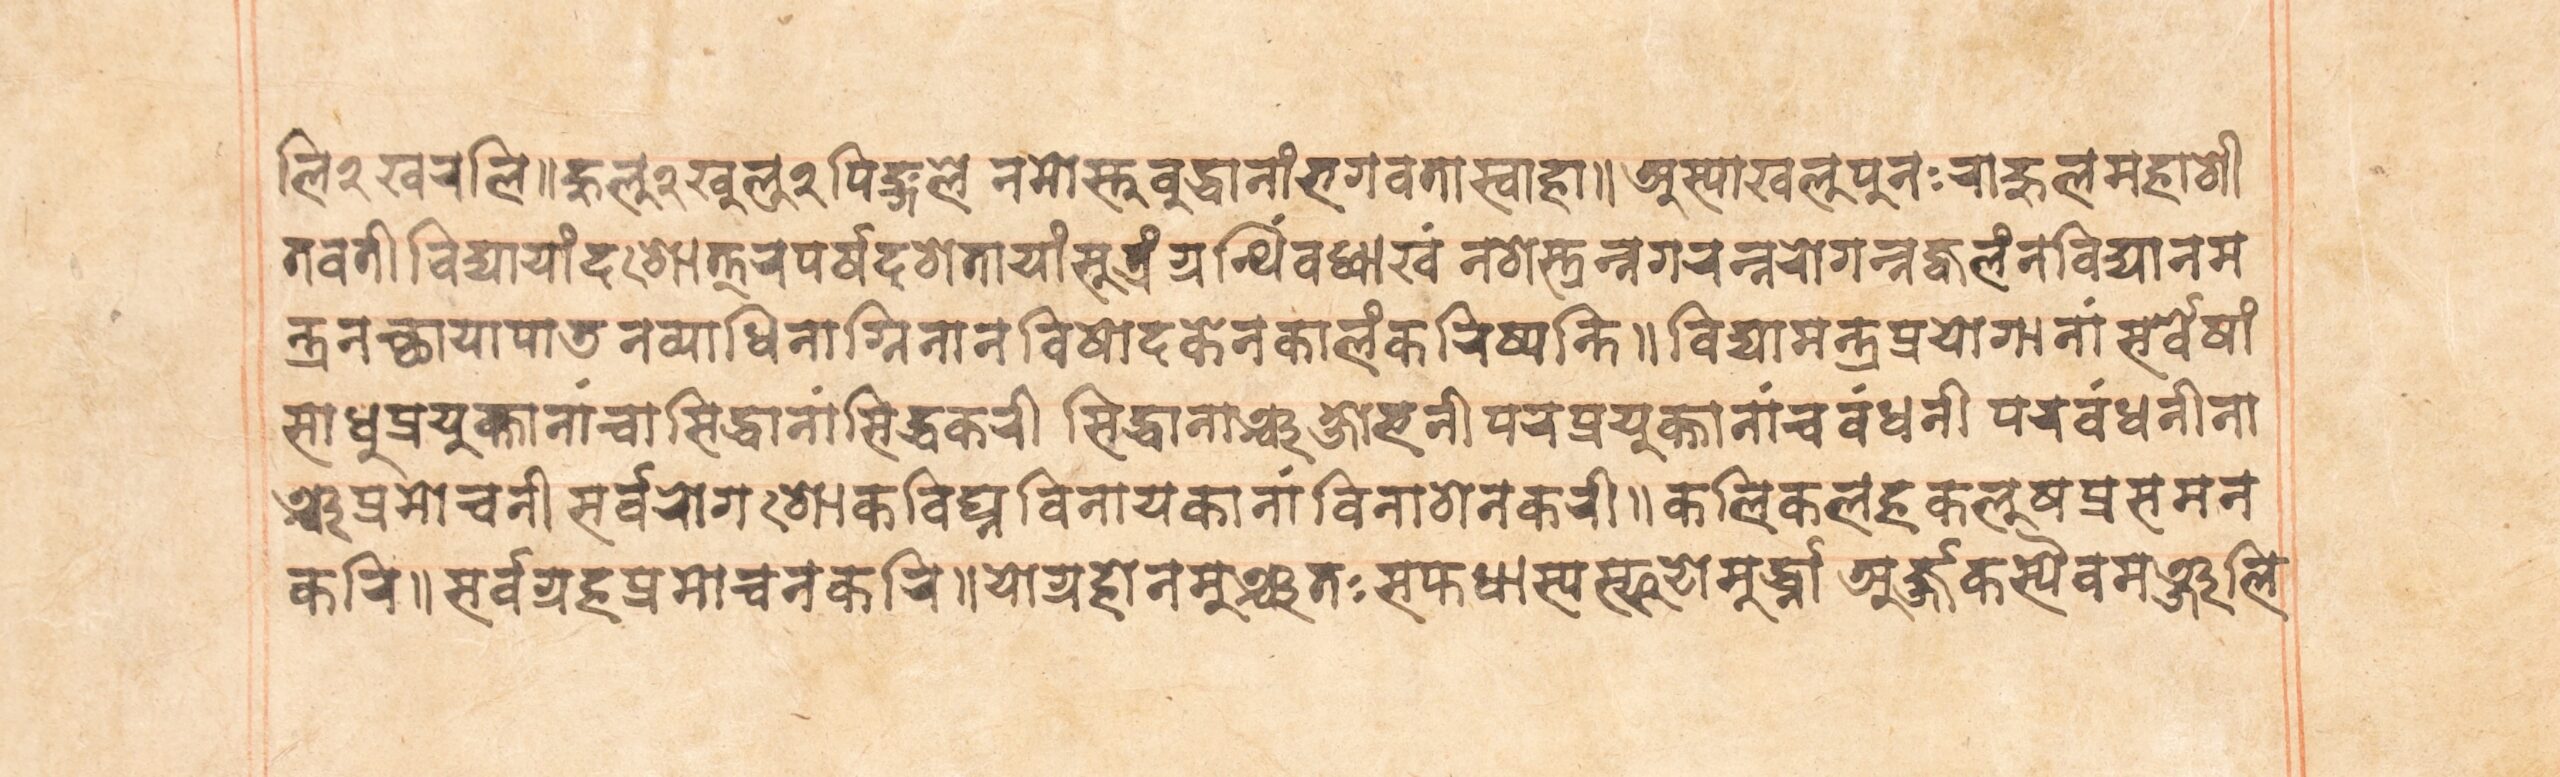 लि२खरलि॥हुलु२खुलु२पिङ्गले नमोस्तुबुद्धानांभगवतास्वाहा॥अस्याखलुपुनःराहुलमहाशी
तवतीविद्यायांदशोत्तरपर्षदशेतायांसुत्रंग्रन्थिंवध्वाखं नशेस्त्रन्नगरन्नरोगन्नज्वलंनविद्यानम
न्त्रनच्छायापातनव्याधिनाग्निनानविषोदकेनकालंकरिष्यन्ति॥विद्यामन्त्रप्रयोगानांसर्वेषां
साधुप्रयुक्तानांचासिद्धानांसिद्धकरी सिद्धानाञ्चक्षोभनीपरप्रयुक्तानांचवंधनी परवंधनीना
ञ्चप्रमोचनीसर्वरोगशोकविघ्नविनायकानांविनाशनकरी॥कलिकलहकलुषप्रसमन
करि॥सर्वग्रहप्रमोचनकरि॥योग्रहोनमुञ्चतःसफधास्यस्फुठोमुर्द्ध्ना अर्ज्जकस्यैवमञ्जलि